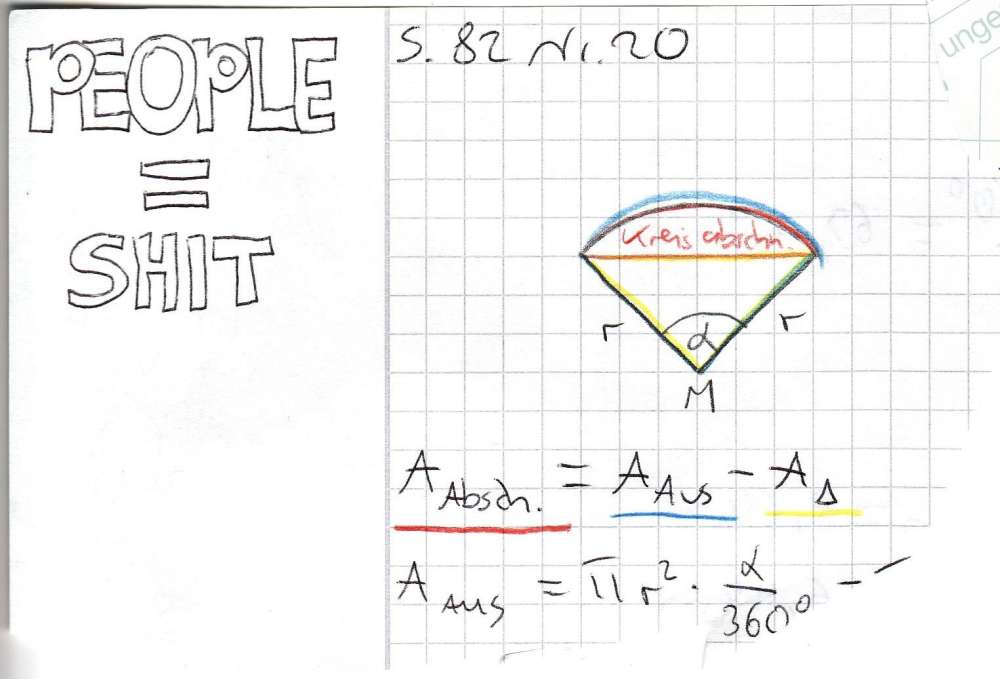 PEOPLE
=
SHIT
unge
S. 82 Nr. 20
Kreisabschn.
r
α
r
M
A Absch. = A Aus - A Δ
A Aus = π r² · α/360° -